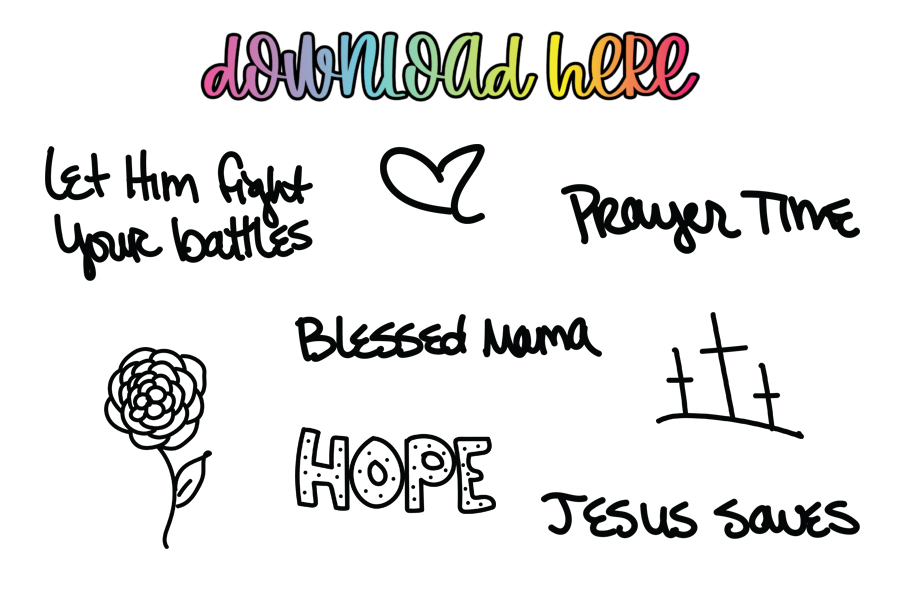 download here
Let Him fight
your battles
Prayer Time
Blessed Mama
HOPE
Jesus saves